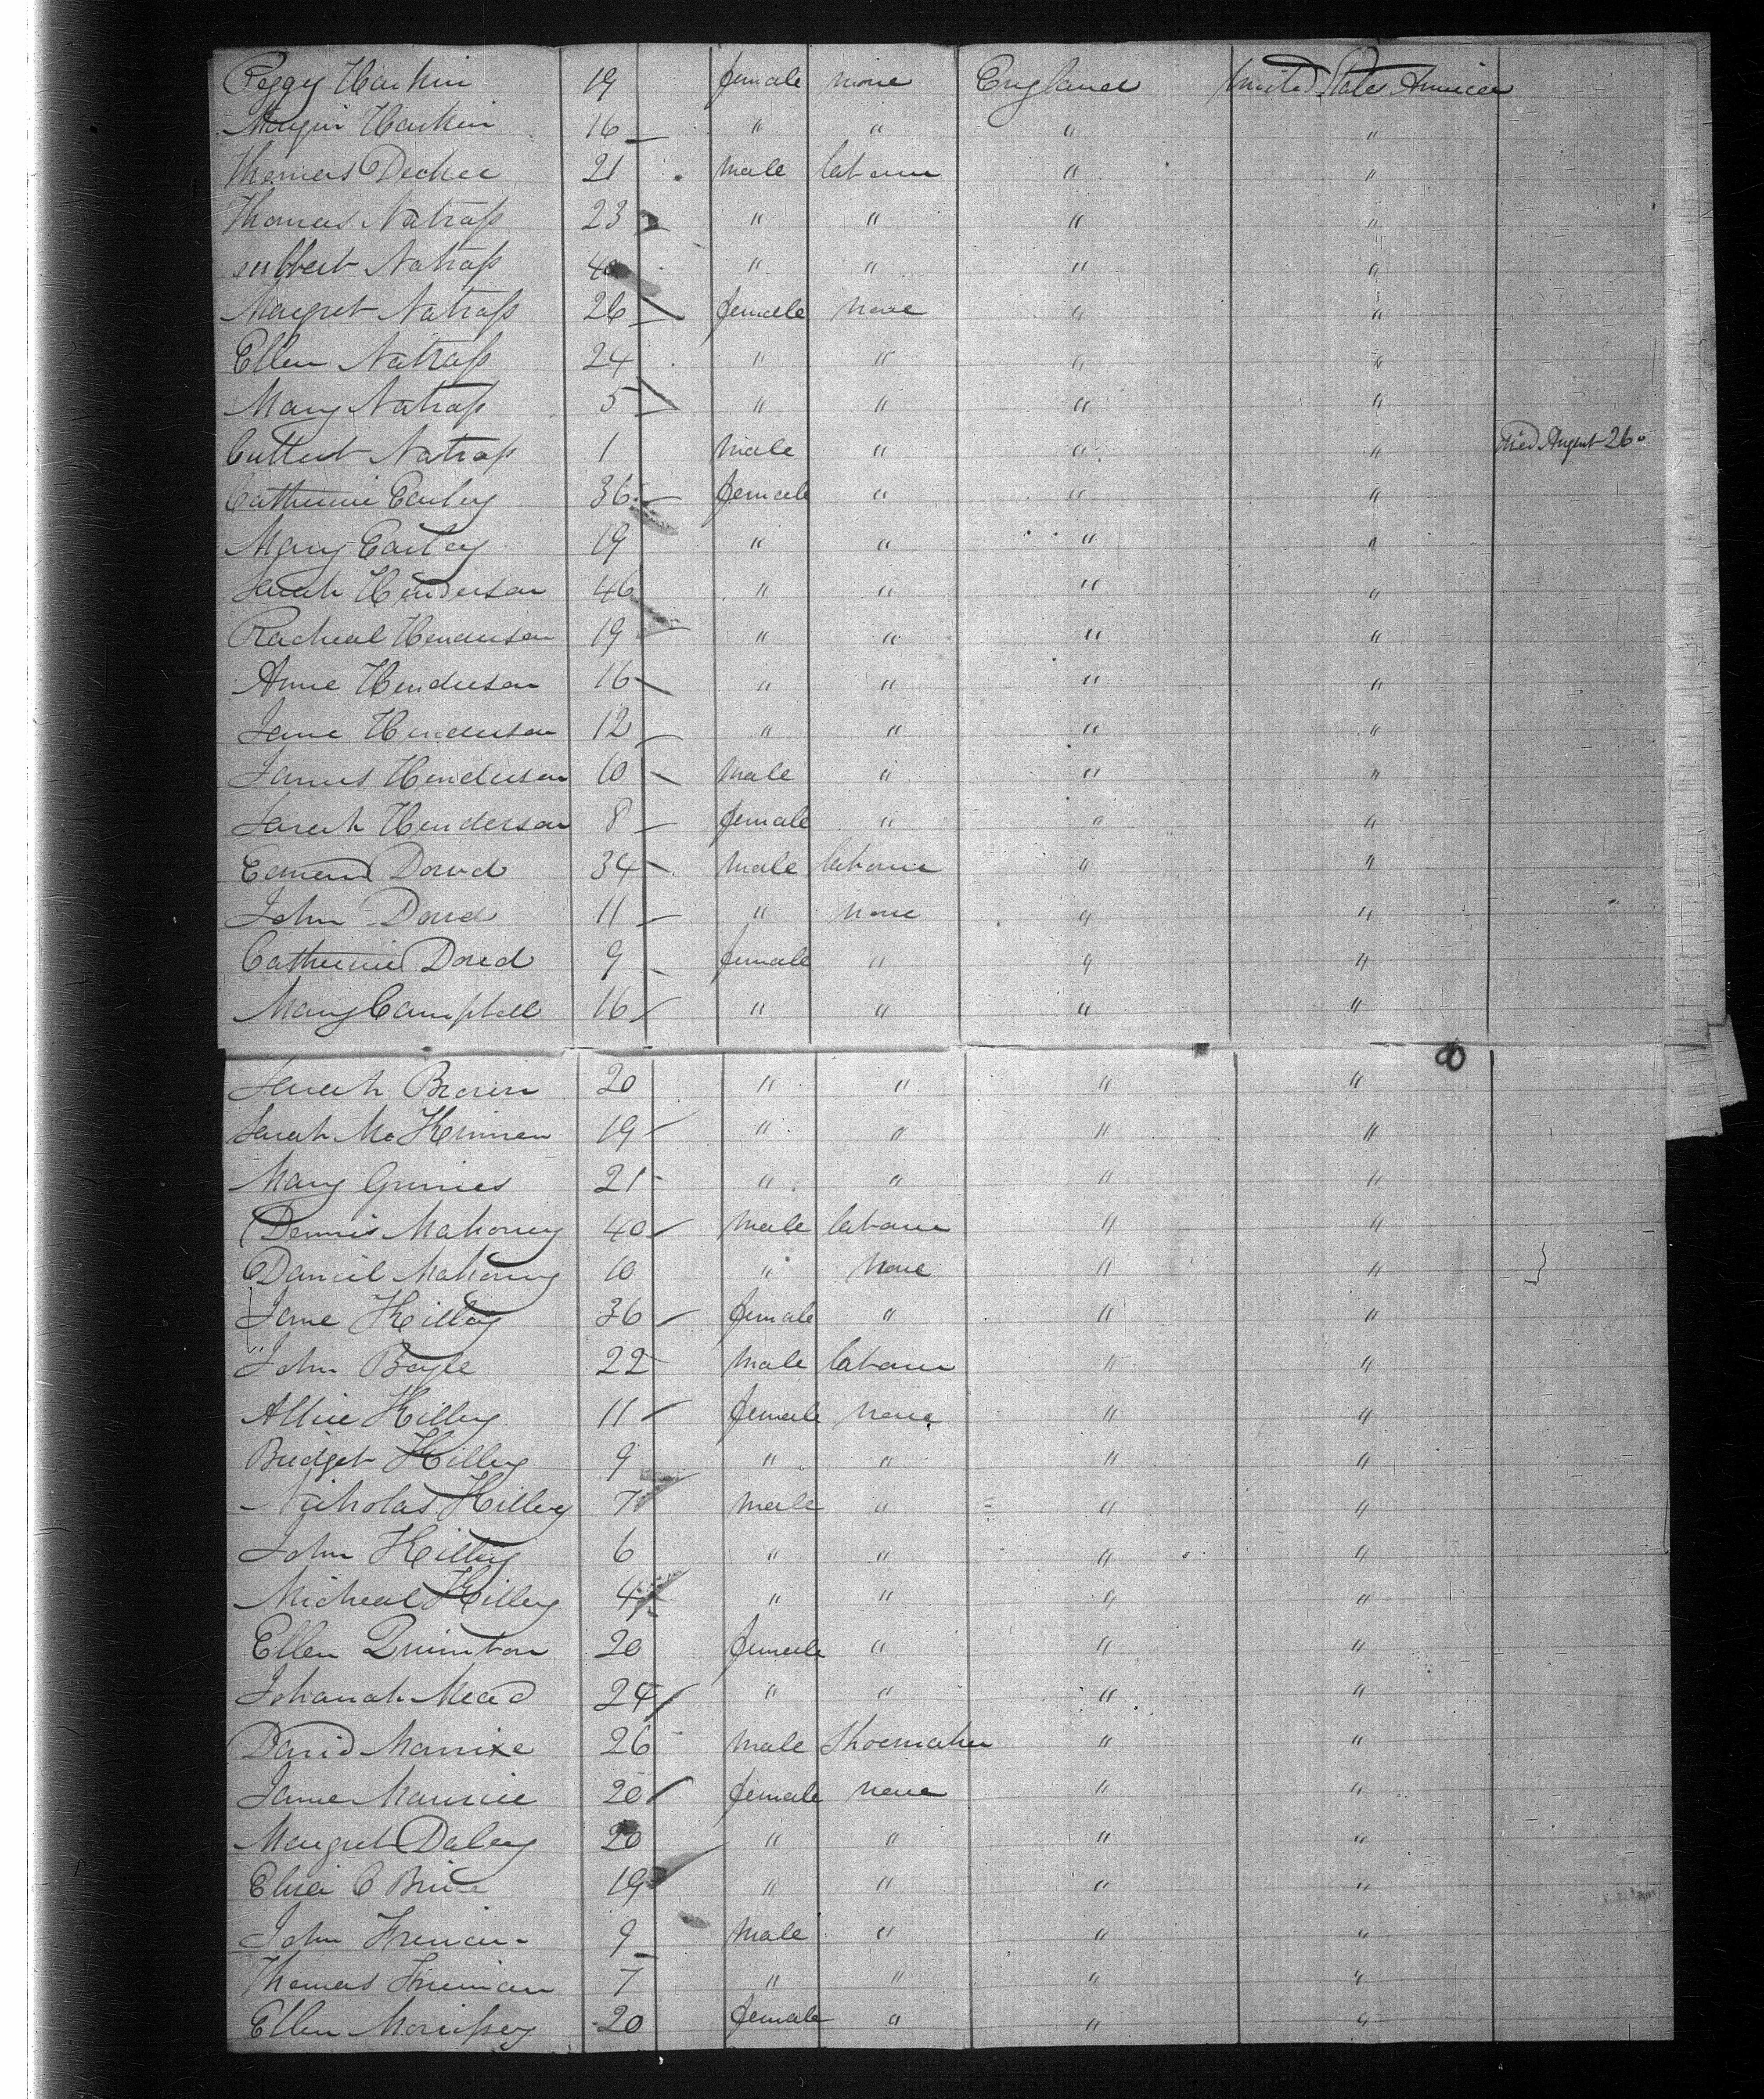 Peggy Harkin 19 female none England United State America
Harkin 16 " " " "
Thomas Decker 21 male labour " "
Thomas Natrass 23 " " " "
Natrass 40 " " " "
Margret Natrass 26 female none " "
Ellen Natrass 24 " " " "
Mary Natrass 5 " " " "
Cutbert Natrass 1 male " " " Died August 26
Catherine Earley 36 female " " "
Mary Earley 19 " " " "
Sarah Henderson 46 " " " "
Racheal Henderson 19 " " " "
Anne Henderson 16 " " " "
Jane Henderson 12 " " " "
James Henderson 10 male " " "
Sarah Henderson 8 female " " "
Edmend Dowd 34 male labour " "
John Dowd 11 " none " "
Catherine Dowd 9 female " " "
Mary Campbell 16 " " " "
8
Sarah Brown 20 " " " "
Sarah McKinnen 19 " " " "
Mary Grimes 21 " " " "
Dennis Mahoney 40 male labour " "
Daniel Mahoney 10 " none " "
Jane Killey 36 female " " "
John Boyle 22 male labour " "
Allice Killey 11 female none " "
Bridget Killey 9 " " " "
Nicholas Killey 7 male " " "
John Killey 6 " " " "
Micheal Killey 4 " " " "
Ellen Quinton 20 female " " "
Johanah Mead 24 " " " "
David 26 male Shoemaker " "
Jane 20 female none " "
Margret Daley 20 " " " "
Eliza O Brine 19 " " " "
John 9 male " " "
Thomas 7 " " " "
Ellen Morrissey 20 female " " "